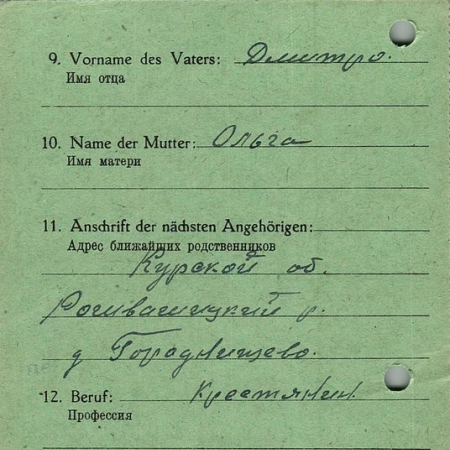 9. Vorname des Vaters: Дмитро.
Имя отца
10. Name der Mutter: Ольга
Имя матери
11. Anschrift der nächsten Angehörigen:
Адрес ближайших родственников
Курской об.
р.
д Городнищево.
12. Beruf: Крестянин
Профессия